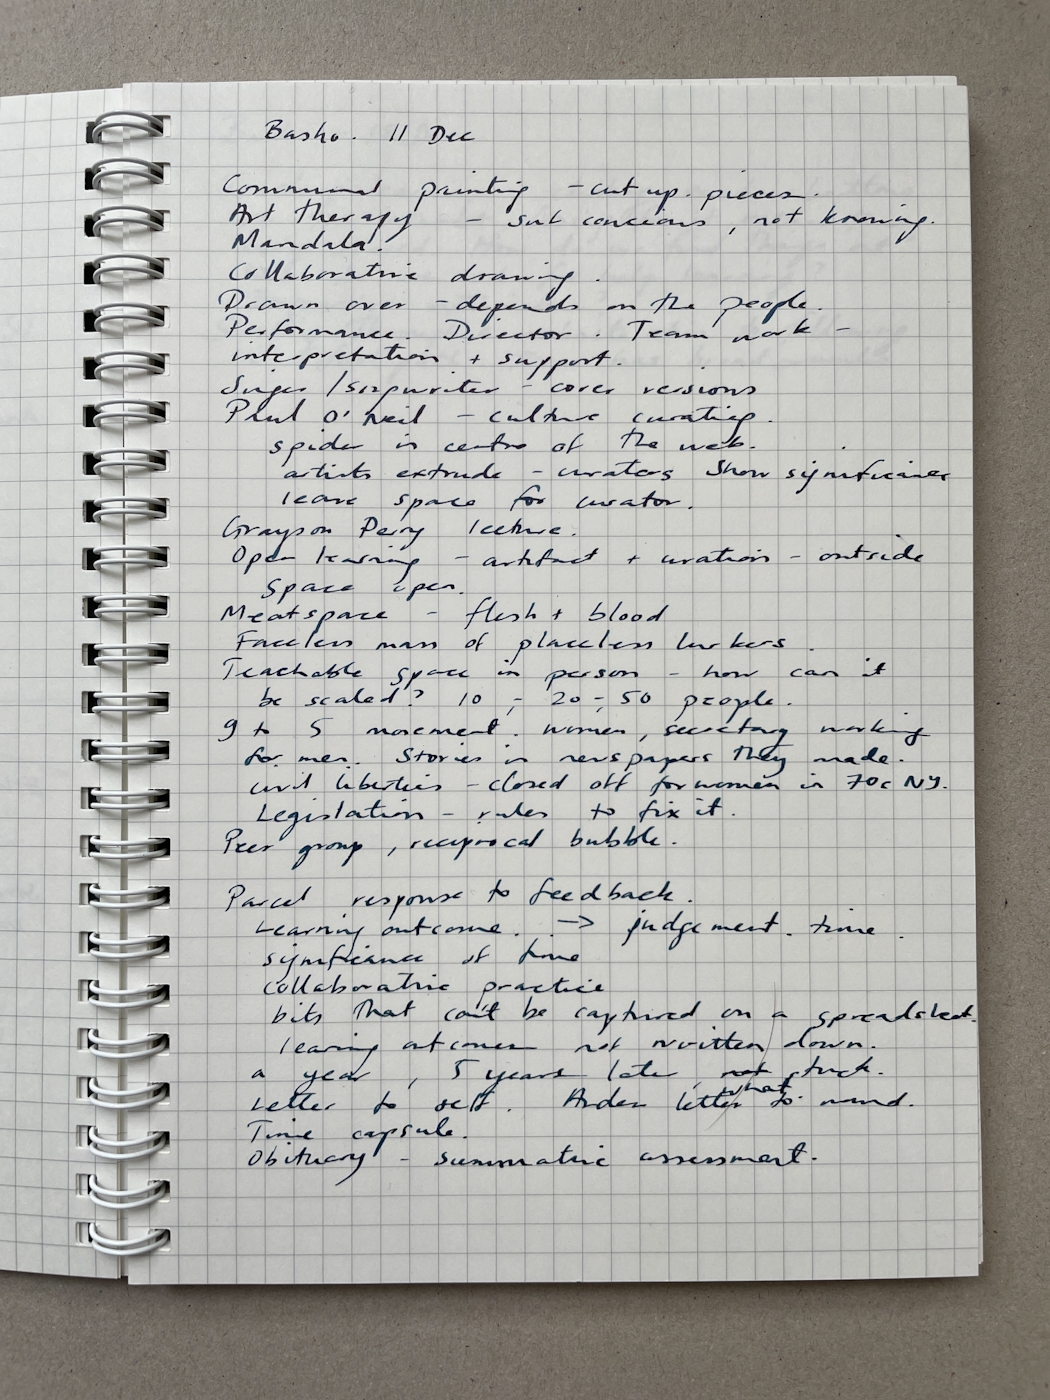 Basho. 11 Dec
Communal painting - cut up pieces.
Art therapy - sub concious, not knowing.
Mandala.
Collaborative drawing.
Drawn over - depends on the people.
Performance. Director. Team work -
interpretation + support.
Singer/songwriter - cover versions
Paul O'Neil - culture curating.
spider in centre of the web.
artists extrude - curators show significance
leave space for curator.
Grayson Perry lecture.
Open learning - artifact + curation - outside
space open.
Meatspace - flesh + blood
Faceless mass of placeless lurkers.
Teachable space in person - how can it
be scaled? 10, 20, 50 people.
9 to 5 movement. women, secretary working
for men. Stories in newspapers they made.
civil liberties - closed off for women in 70s NY.
Legislation - rules to fix it.
Peer group, reciprocal bubble.
Parcel response to feedback.
Learning outcome. -> judgement. time.
significance of time
collaborative practice
bits that can't be captured on a spreadsheet.
learing outcomes not written down.
a year, 5 years later, what stuck.
Letter to self. letter to mind.
Time capsule.
Obituary - summative assessment.